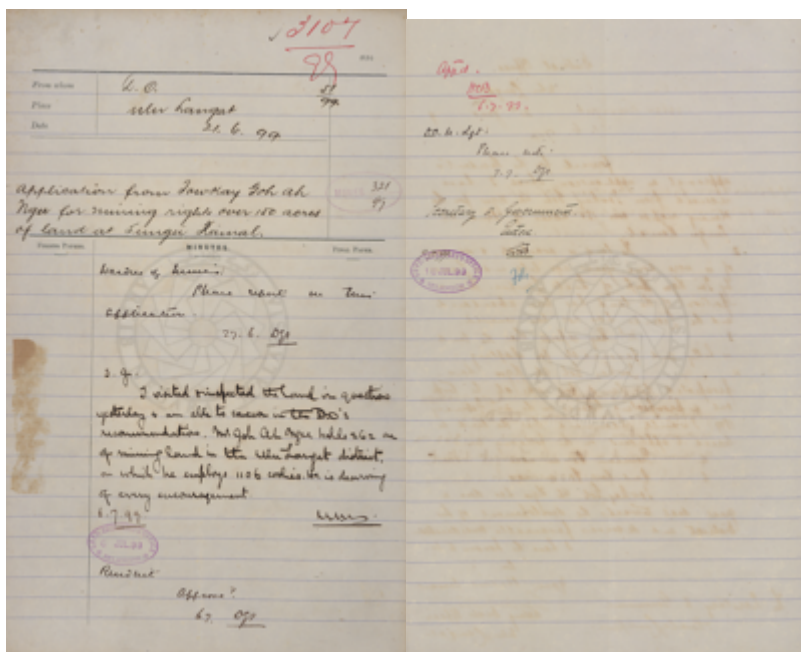 3107
99
From whom
D. O.
51
99
Place
Ulu Langat
Date
21. 6. 99
Application from Towkay Goh Ah
Ngee for mining rights over 150 acres
of land at Sungei Ramal.
321
97
MINUTES.
Warden of Mines.
Please report on this
application.
27. 6.
S. G.
I visited & inspected the land in question
yesterday & am able to concur in the D.O's
recommendation. Mr Goh Ah Ngee holds 262 ac
of mining land in the Ulu Langat district,
on which he employs 1106 coolies. He is deserving
of every encouragement.
6.7.99
JUL 99
Resident
Approve?
6.7.
Appd.
6.7.99.
D.O. U. Lgt.
Please note.
7.7.
Secretary to Government
Noted
JUL 99